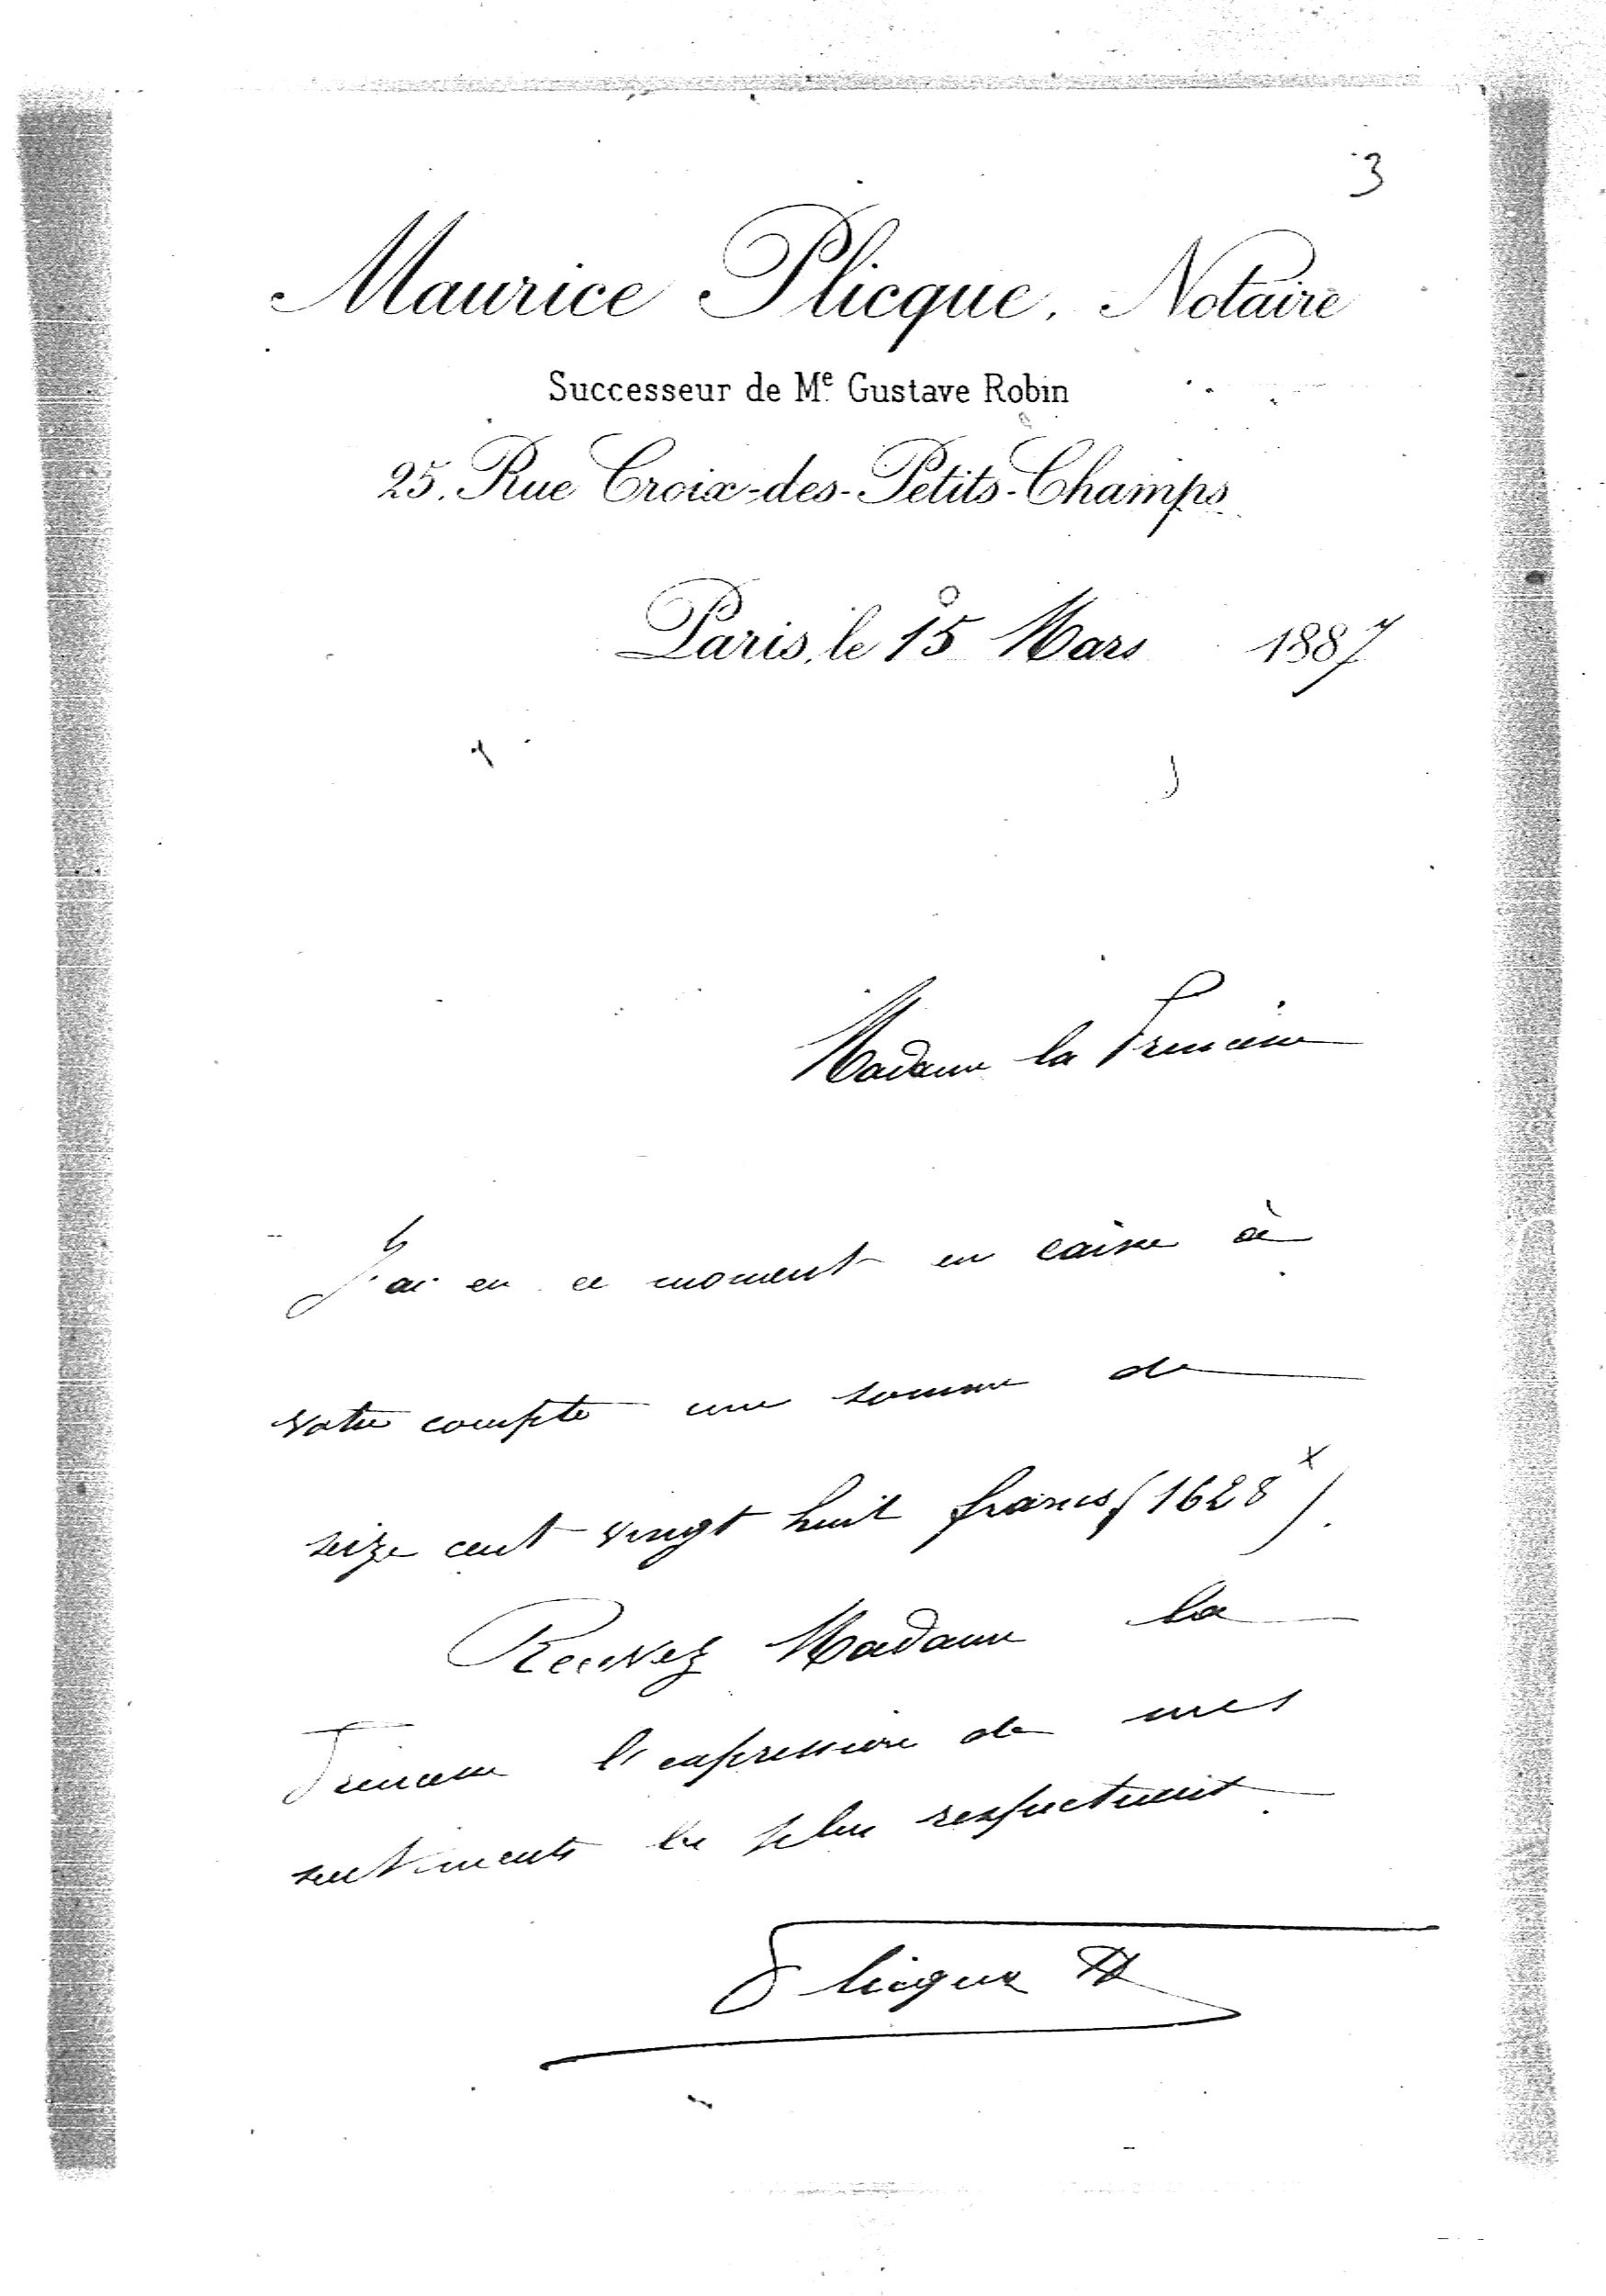 3
Maurice Plicque, Notaire
Successeur de Me Gustave Robin
25, Rue Croix-des-Petits-Champs
Paris, le 15 Mars 1887
Madame la Princesse
J'ai en ce moment en caisse à
votre compte une somme de
seize cent vingt huit francs (1628 f).
Recevez Madame la
Princesse l'expression de mes
sentiments les plus respectueux.
Plicque